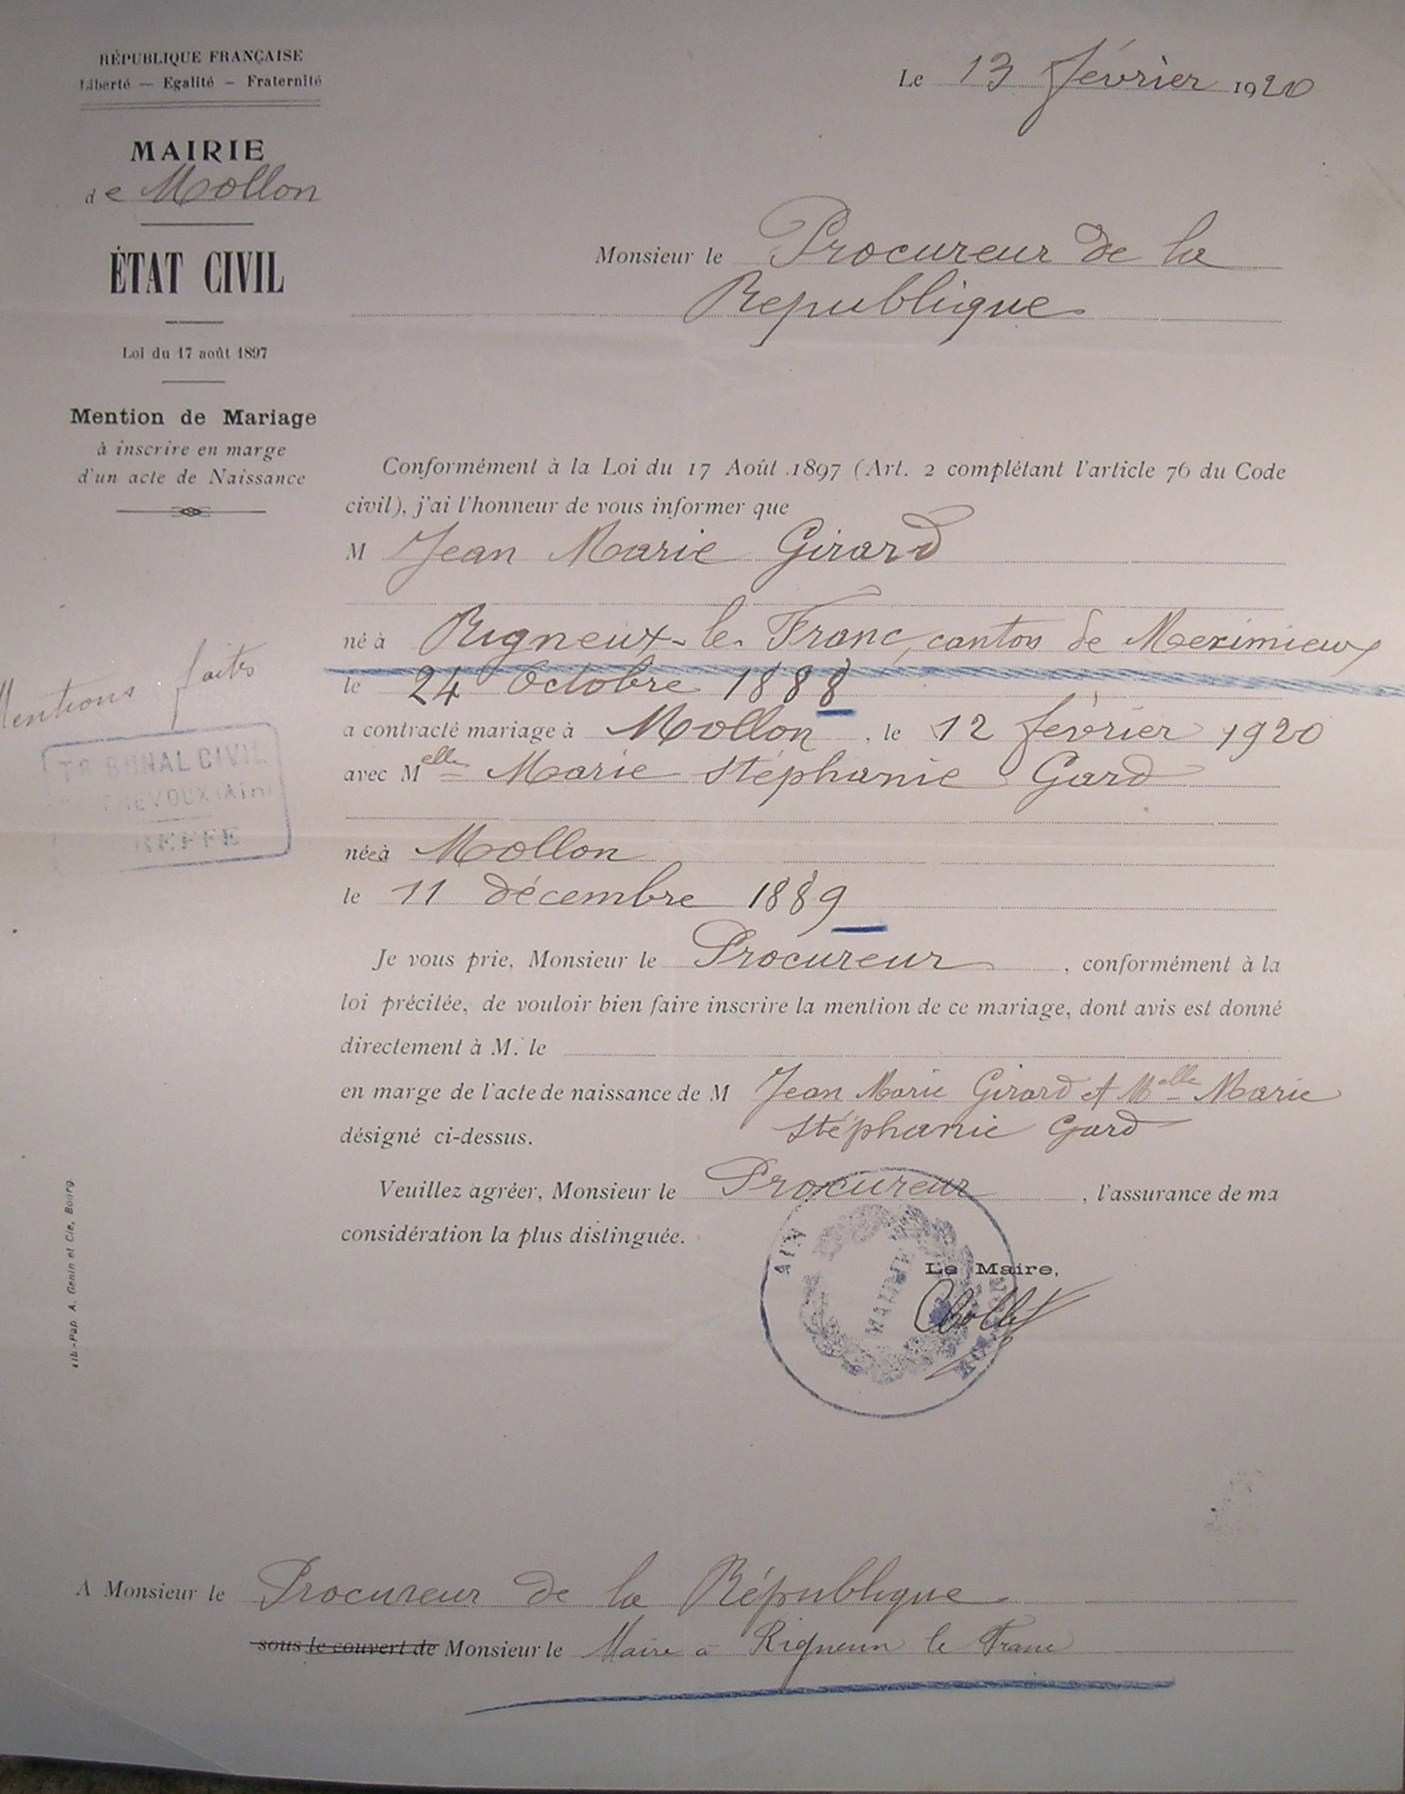 RÉPUBLIQUE FRANÇAISE
Liberté — Egalité — Fraternité
MAIRIE
de Mollon
ÉTAT CIVIL
Loi du 17 août 1897
Mention de Mariage
à inscrire en marge
d'un acte de Naissance
Mentions faites
TRIBUNAL CIVIL
TREVOUX (AIN)
GREFFE
Lib.-Pap. A. Genin et Cie, Bourg.
Le 13 février 1920
Monsieur le Procureur de la
Republique
Conformément à la Loi du 17 Août 1897 (Art. 2 complétant l'article 76 du Code
civil), j'ai l'honneur de vous informer que
M Jean Marie Girard
né à Rigneux-le-Franc, canton de Meximieux
le 24 Octobre 1888
a contracté mariage à Mollon, le 12 février 1920
avec Melle Marie Stéphanie Gard
née à Mollon
le 11 décembre 1889
Je vous prie, Monsieur le Procureur, conformément à la
loi précitée, de vouloir bien faire inscrire la mention de ce mariage, dont avis est donné
directement à M. le
en marge de l'acte de naissance de M Jean Marie Girard et Melle Marie
désigné ci-dessus. Stéphanie Gard
Veuillez agréer, Monsieur le Procureur, l'assurance de ma
considération la plus distinguée.
Le Maire,
Chollet
AIN
MAIRIE
MOLLON
A Monsieur le Procureur de la République
sous le couvert de Monsieur le Maire à Rigneux le Franc